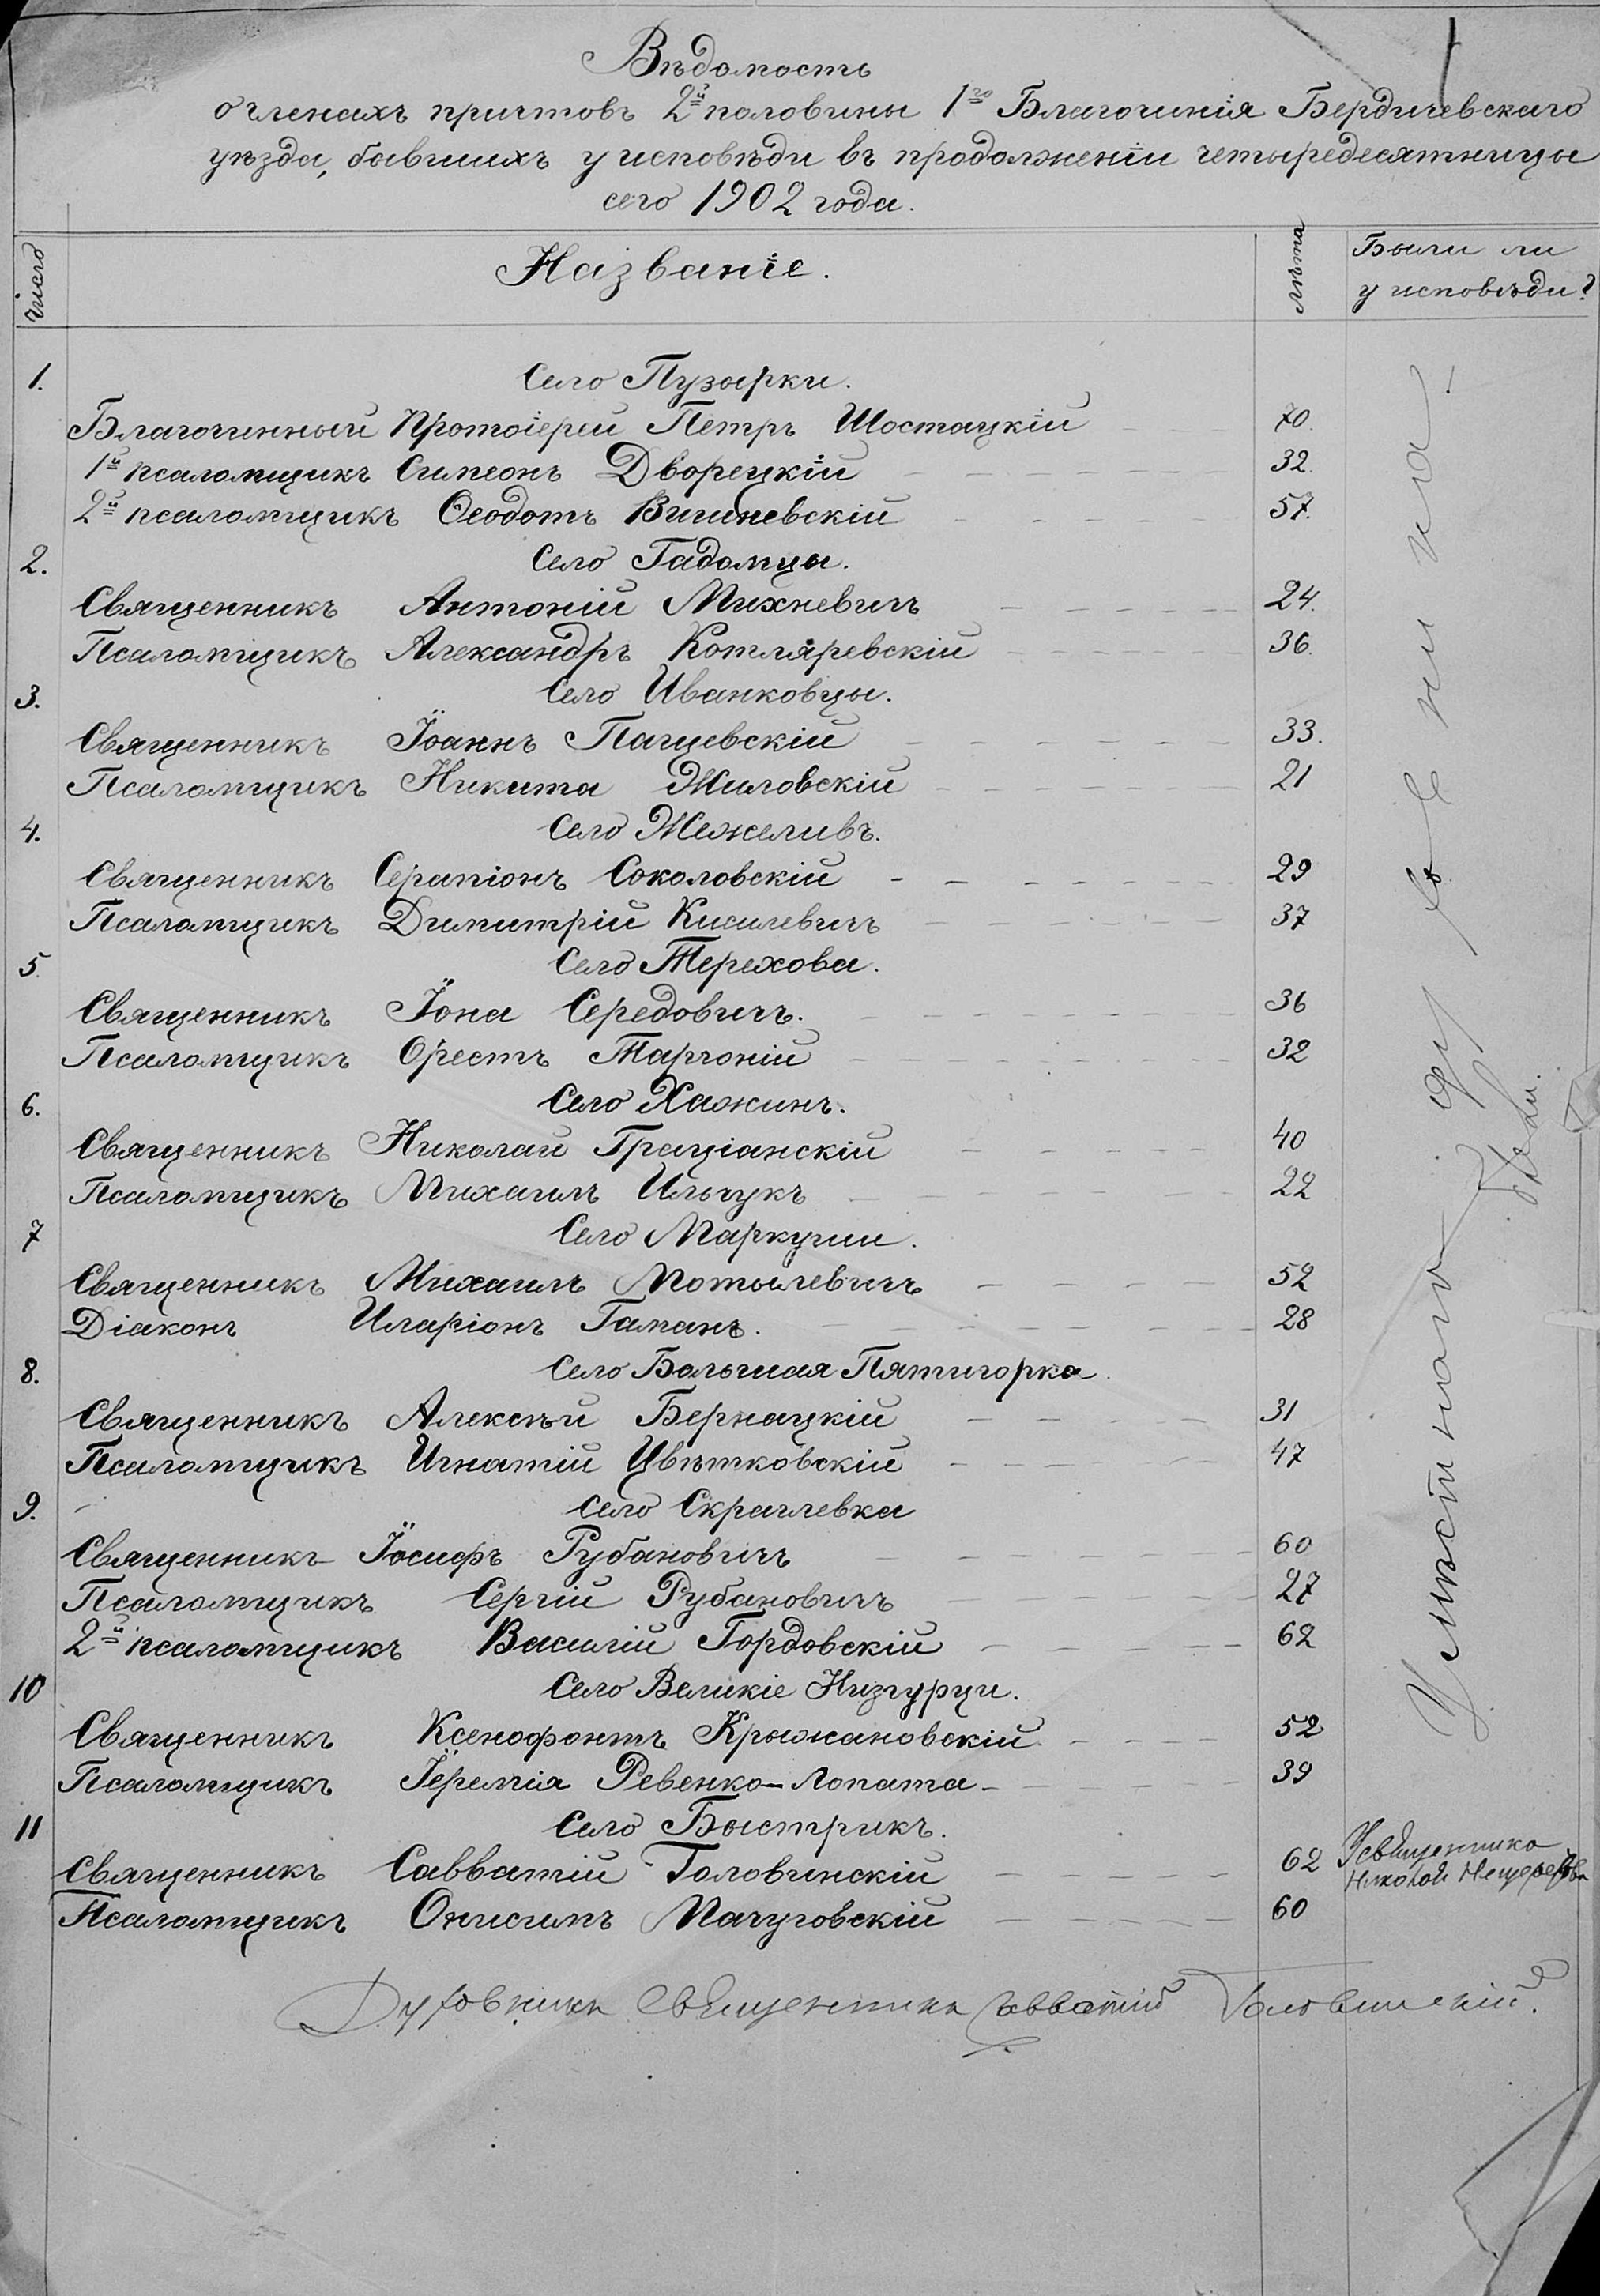 Вѣдомость
о членахъ причтовъ 2й половины 1го Благочинія Бердичевскаго
уѣзда, бывшихъ у исповѣди въ продолженіи четыредесятницы
сего 1902 года.
число
Названіе.
лѣта
Были ли
у исповѣди?
1. Село Пузырки.
Благочинный Протоіерей Петръ Шостацкій 70.
1й псаломщикъ Симеонъ Дворецкій 32.
2й псаломщикъ Ѳеодотъ Вишневскій 57.
2. Село Гадомцы.
Священникъ Антоній Михневичъ 24.
Псаломщикъ Александръ Котляревскій 36.
3. Село Иванковцы.
Священникъ Іоаннъ Пащевскій 33.
Псаломщикъ Никита Жиловскій 21
4. Село Жежеливъ.
Священникъ Серапіонъ Соколовскій 29
Псаломщикъ Димитрій Кисилевичъ 37
5. Село Терехова.
Священникъ Іона Середовичъ. 36
Псаломщикъ Орестъ Таргоній 32
6. Село Хажинъ.
Священникъ Николай Граціанскій 40
Псаломщикъ Михаилъ Ильчукъ 22
7 Село Маркуши.
Священникъ Михаилъ Мотылевичъ 52
Діаконъ Иларіонъ Гаманъ. 28
8. Село Большая Пятигорка.
Священникъ Алексѣй Бернацкій 31
Псаломщикъ Игнатій Цвѣтковскій 47
9. Село Скраглевка
Священникъ Іосифъ Рубановичъ 60
Псаломщикъ Сергій Рубановичъ 27
2й псаломщикъ Василій Гордовскій 62
10 Село Великіе Низгурци.
Священникъ Ксенофонтъ Крыжановскій 52
Псаломщикъ Іеремія Ревенко-Лопата 39
11 Село Быстрикъ.
Священникъ Савватій Головинскій 62
Псаломщикъ Онисимъ Мачуговскій 60
У мѣстнаго духовника
Духовникъ Священникъ Савватій Головинскій.